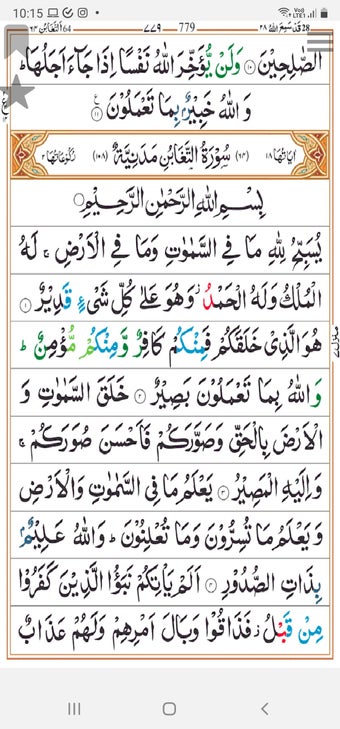 10:15
64 اَلتَّغَابُن ٧٧٩ 779 قَدْ سَمِعَ اللّٰهُ 28
الصّٰلِحِيْنَ ۝١٠ وَلَنْ يُّؤَخِّرَ اللّٰهُ نَفْسًا اِذَا جَآءَ اَجَلُهَا ؕ
وَ اللّٰهُ خَبِيْرٌۢ بِمَا تَعْمَلُوْنَ ۝١١
اٰيَاتُهَا ١٨ (٦٤) سُوْرَةُ التَّغَابُنِ مَدَنِيَّةٌ (١٠٨) رُكُوْعَاتُهَا ٢
بِسْمِ اللّٰهِ الرَّحْمٰنِ الرَّحِيْمِ
يُسَبِّحُ لِلّٰهِ مَا فِي السَّمٰوٰتِ وَمَا فِي الْاَرْضِ ۚ لَهُ
الْمُلْكُ وَلَهُ الْحَمْدُ ؗ وَهُوَ عَلٰى كُلِّ شَيْءٍ قَدِيْرٌ ۝١
هُوَ الَّذِيْ خَلَقَكُمْ فَمِنْكُمْ كَافِرٌ وَّمِنْكُمْ مُّؤْمِنٌ ؕ
وَاللّٰهُ بِمَا تَعْمَلُوْنَ بَصِيْرٌ ۝٢ خَلَقَ السَّمٰوٰتِ وَ
الْاَرْضَ بِالْحَقِّ وَصَوَّرَكُمْ فَاَحْسَنَ صُوَرَكُمْ ۚ
وَاِلَيْهِ الْمَصِيْرُ ۝٣ يَعْلَمُ مَا فِي السَّمٰوٰتِ وَالْاَرْضِ
وَيَعْلَمُ مَا تُسِرُّوْنَ وَمَا تُعْلِنُوْنَ ؕ وَاللّٰهُ عَلِيْمٌۢ
بِذَاتِ الصُّدُوْرِ ۝٤ اَلَمْ يَاْتِكُمْ نَبَؤُا الَّذِيْنَ كَفَرُوْا
مِنْ قَبْلُ ؗ فَذَاقُوْا وَبَالَ اَمْرِهِمْ وَلَهُمْ عَذَابٌ